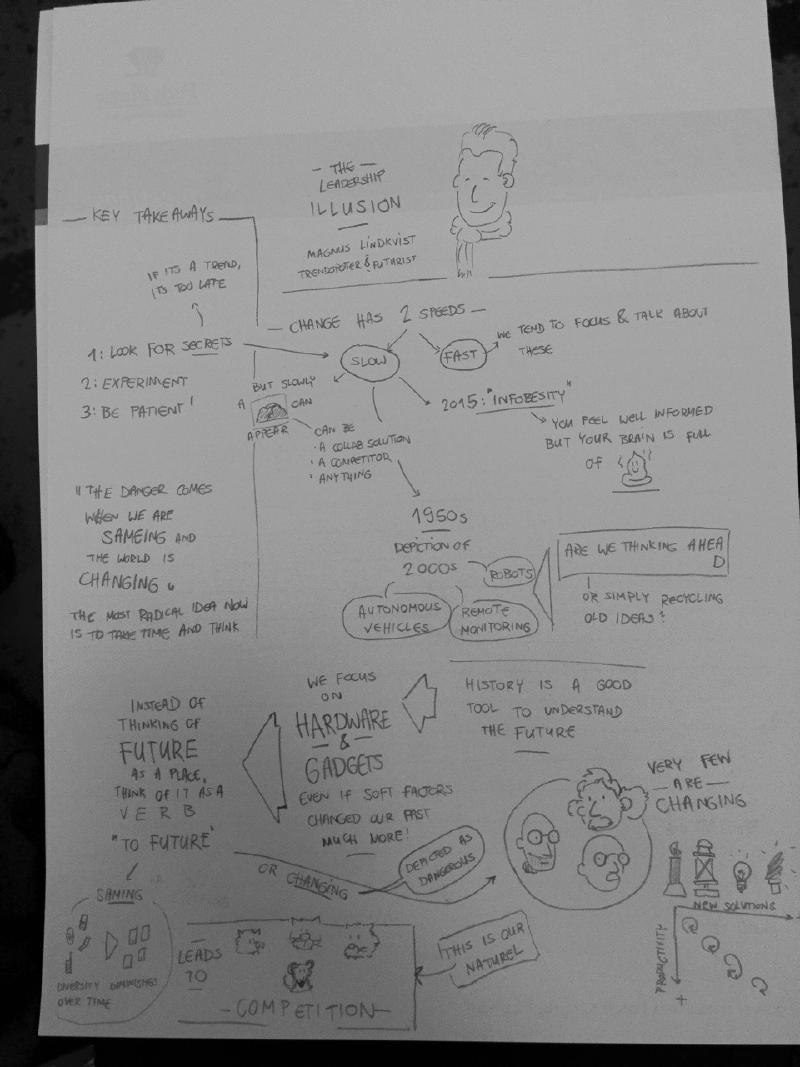 — THE —
LEADERSHIP
ILLUSION
MAGNUS LINDKVIST
TRENDSPOTER & FUTURIST
— KEY TAKEAWAYS —
IF ITS A TREND,
ITS TOO LATE
1: LOOK FOR SECRETS
2: EXPERIMENT
3: BE PATIENT!
"THE DANGER COMES
WHEN WE ARE
SAMEING AND
THE WORLD IS
CHANGING"
THE MOST RADICAL IDEA NOW
IS TO TAKE TIME AND THINK
— CHANGE HAS 2 SPEEDS —
SLOW
FAST
WE TEND TO FOCUS & TALK ABOUT
THESE
BUT SLOWLY
A CAN
APPEAR
CAN BE
· A COLLAB SOLUTION
· A COMPETITOR
· ANYTHING
2015: "INFOBESITY"
YOU FEEL WELL INFORMED
BUT YOUR BRAIN IS FULL
OF
1950s
DEPICTION OF
2000s
ROBOTS
AUTONOMOUS
VEHICLES
REMOTE
MONITORING
ARE WE THINKING AHEA
D
OR SIMPLY RECYCLING
OLD IDEAS?
HISTORY IS A GOOD
TOOL TO UNDERSTAND
THE FUTURE
WE FOCUS
ON
HARDWARE
&
GADGETS
EVEN IF SOFT FACTORS
CHANGED OUR PAST
MUCH MORE!
INSTEAD OF
THINKING OF
FUTURE
AS A PLACE,
THINK OF IT AS A
VERB
"TO FUTURE"
OR CHANGING
DEPICTED AS
DANGEROUS
VERY FEW
— ARE —
CHANGING
NEW SOLUTIONS
PRODUCTIVITY
+
SAMING
DIVERSITY DIMINISHES
OVER TIME
LEADS
TO
— COMPETITION —
THIS IS OUR
NATURE!